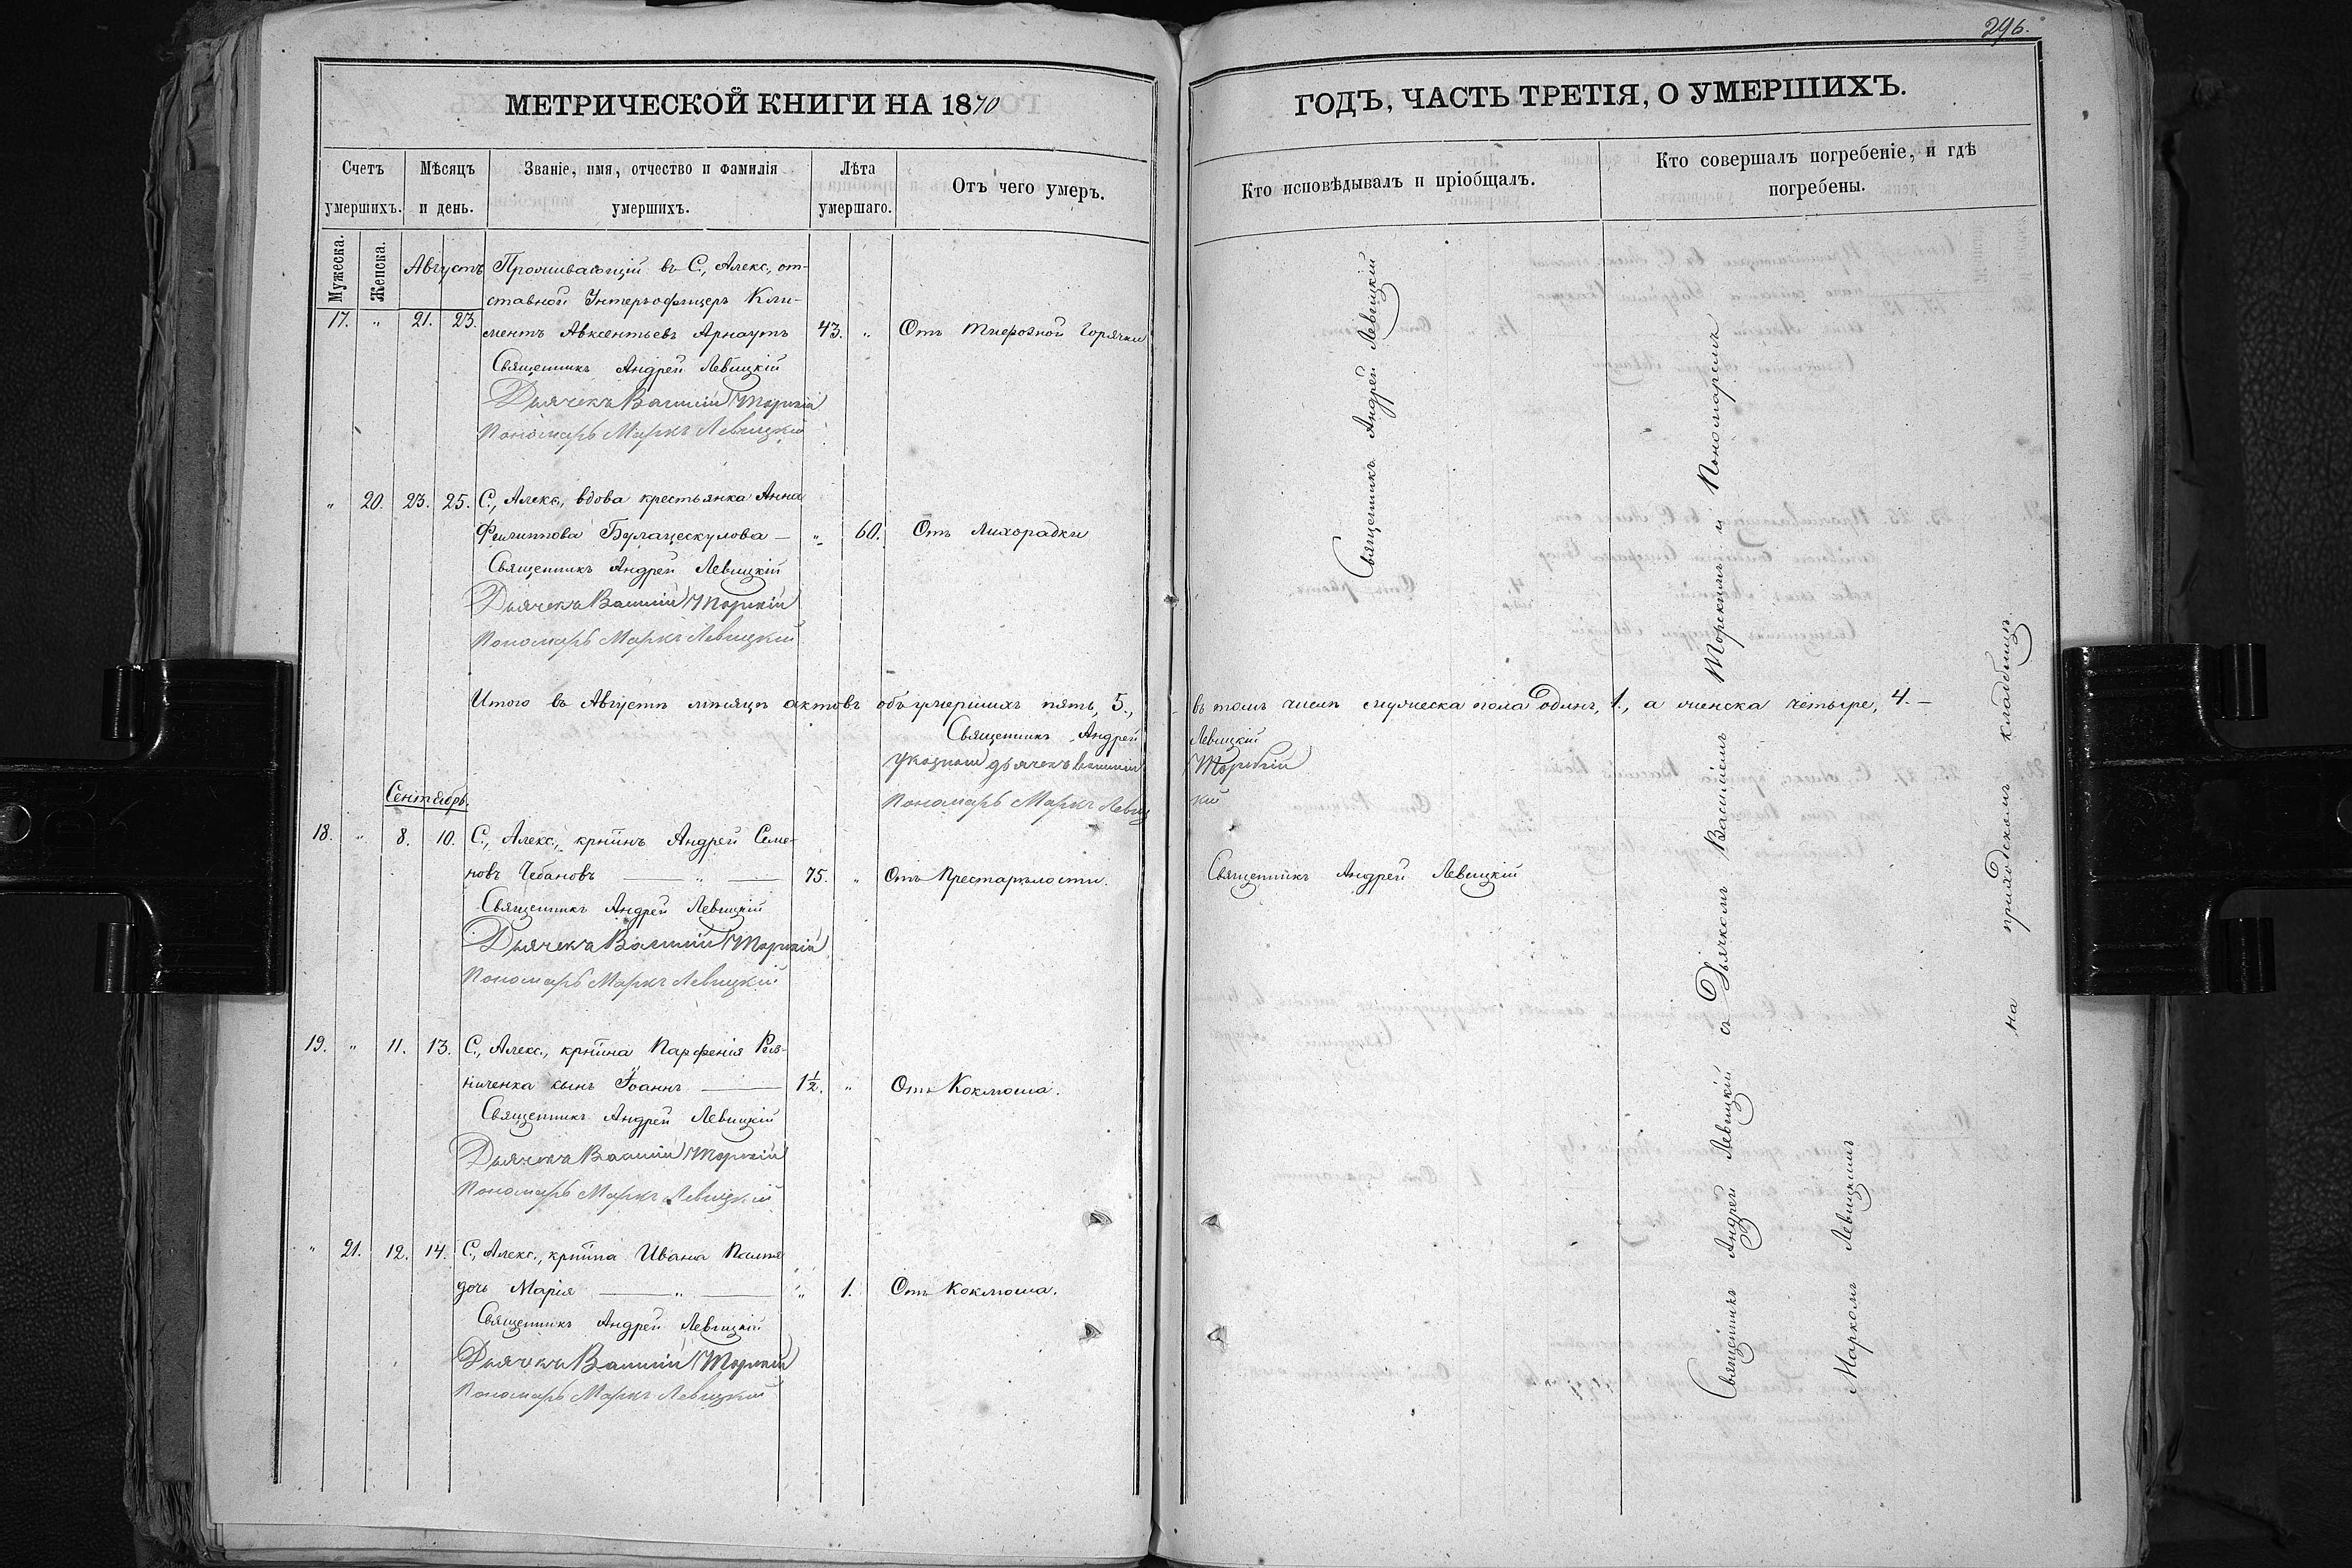 296.
МЕТРИЧЕСКОЙ КНИГИ НА 1870
ГОДЪ, ЧАСТЬ ТРЕТІЯ, О УМЕРШИХЪ.
Счетъ умершихъ.
Мѣсяцъ и день.
Званіе, имя, отчество и фамилія умершихъ.
Лѣта умершаго.
Отъ чего умеръ.
Кто исповѣдывалъ и пріобщалъ.
Кто совершалъ погребеніе, и гдѣ погребены.
Мужеска.
Женска.
Августъ
Проживающій въ С., Алекс., от-
ставной Унтеръ-офицеръ Кли-
17. " 21. 23. ментъ Авксентьевъ Арнаутъ 43. " Отъ Тифозной Горячки
Священникъ Андрей Левицкій
Дьячекъ Василій Торскій
Пономарь Маркъ Левицкій
" 20. 23. 25. С., Алекс., вдова крестьянка Анна
Филиппова — " 60. Отъ Лихорадки
Священникъ Андрей Левицкій
Дьячекъ Василій Торскій
Пономарь Маркъ Левицкій
Итого въ Августѣ мѣсяцѣ актовъ объ умершихъ пять, 5., въ томъ числѣ мужеска пола одинъ, 1., а женска четыре, 4. —
Священникъ Андрей Левицкій
Указный дьячекъ Василій Торскій
Пономарь Маркъ Левицкій
Сентябрь.
18. " 8. 10. С., Алекс., крнинъ Андрей Семе-
новъ Чебановъ — " — 75. " Отъ Престарѣлости. Священникъ Андрей Левицкій
Священникъ Андрей Левицкій
Дьячекъ Василій Торскій
Пономарь Маркъ Левицкій
19. " 11. 13. С., Алекс., крнина Парфенія
сынъ Іоаннъ — 1½. " Отъ Коклюша.
Священникъ Андрей Левицкій
Дьячекъ Василій Торскій
Пономарь Маркъ Левицкій
" 21. 12. 14. С., Алекс., крнина Ивана
дочь Марія — " — " 1. Отъ Коклюша.
Священникъ Андрей Левицкій
Дьячекъ Василій Торскій
Пономарь Маркъ Левицкій
Священникъ Андрей Левицкій
Священникъ Андрей Левицкій съ Дьячкомъ Василіемъ Торскимъ и Пономаремъ
Маркомъ Левицкимъ
на приходскомъ кладбищѣ.